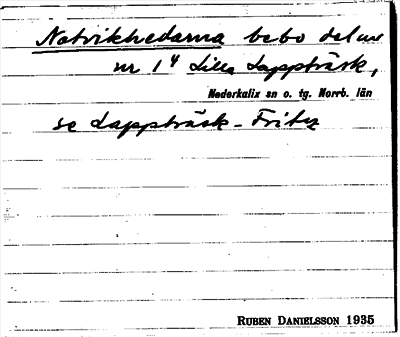 Notvikhedarna bebo delar
nr 1⁴ Lilla Lappträsk,
Nederkalix sn o. tg. Norrb. län
se Lappträsk - Fritz
RUBEN DANIELSSON 1935